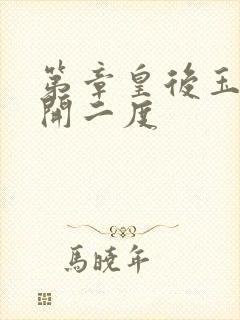 第章皇後玉
開二度
馬曉年